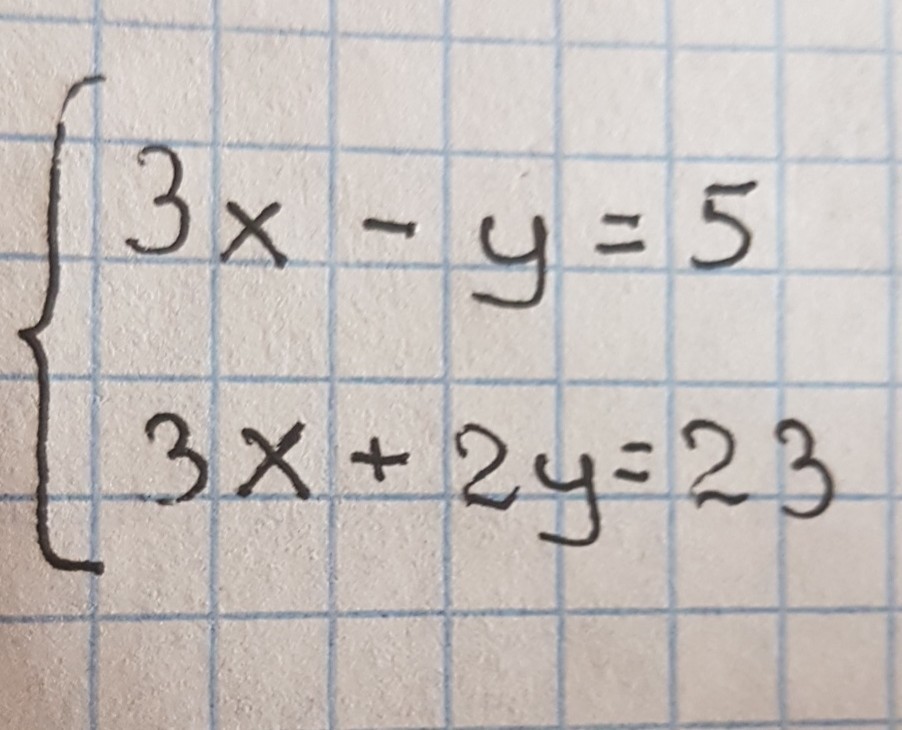 3x - y = 5
3x + 2y = 23